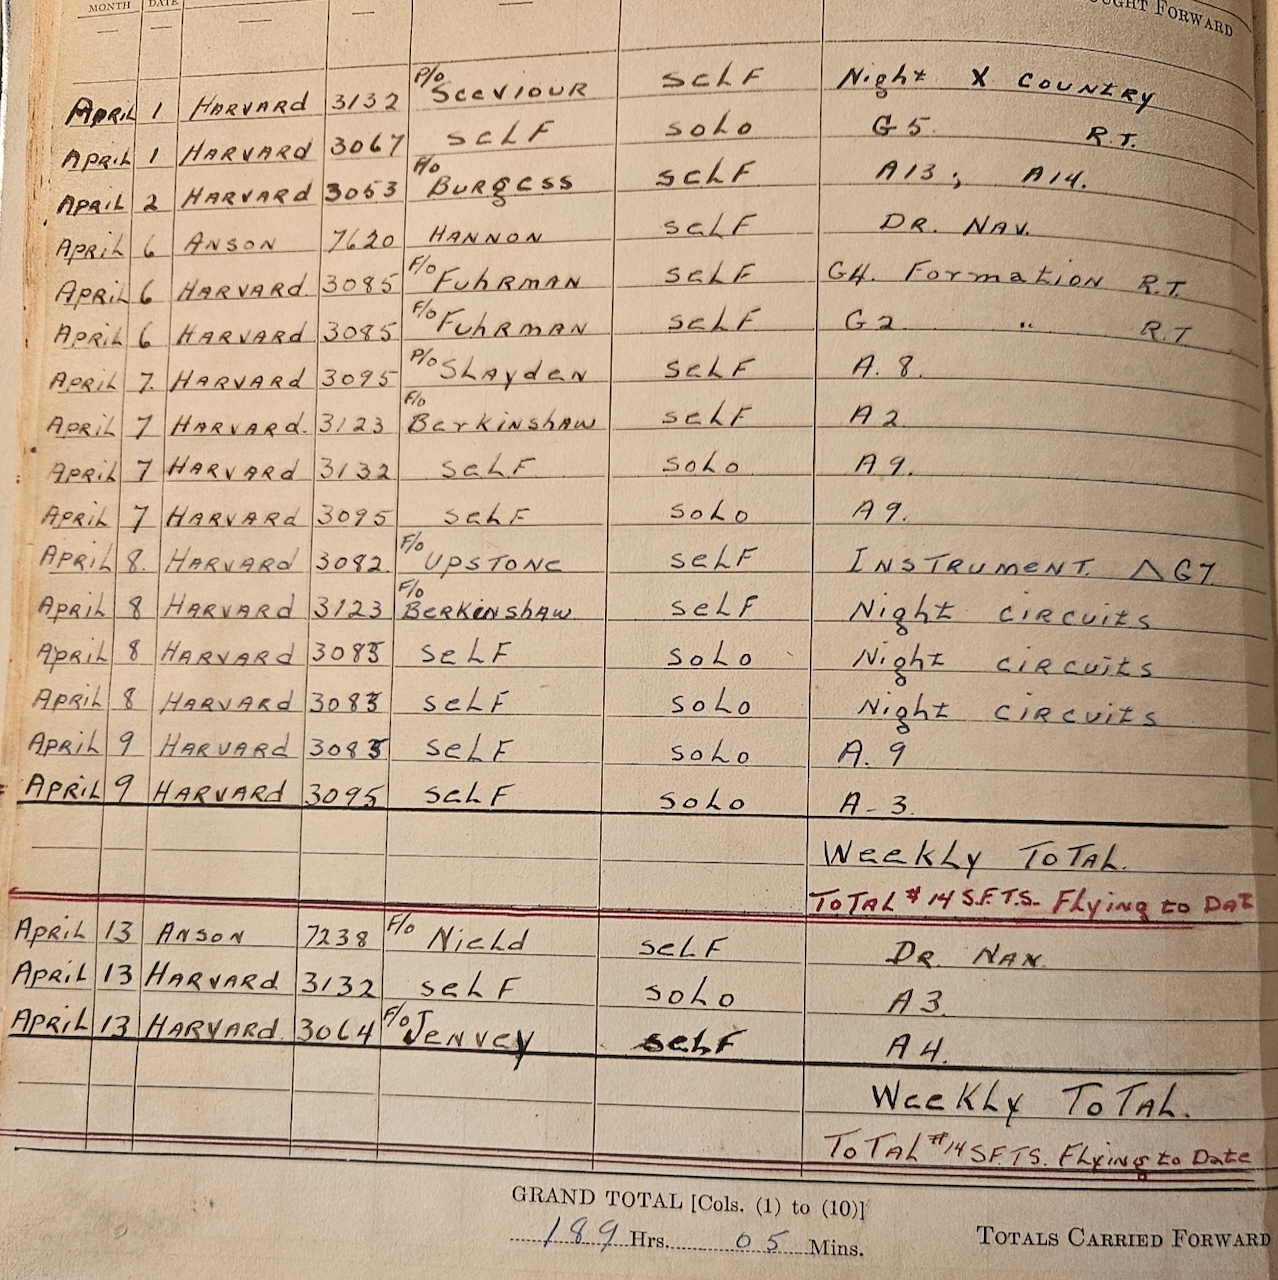 MONTH DATE
OUGHT FORWARD
— — — — —
APRIL 1 HARVARD 3132 P/O SCEVIOUR SELF Night X COUNTRY
APRIL 1 HARVARD 3067 SELF SOLO G5. R.T.
APRIL 2 HARVARD 3053 F/O BURGESS SELF A13; A14.
APRIL 6 ANSON 7620 HANNON SELF DR. NAV.
APRIL 6 HARVARD. 3085 F/O FUHRMAN SELF G4. Formation R.T.
APRIL 6 HARVARD 3085 F/O FUHRMAN SELF G2 " R.T
APRIL 7. HARVARD. 3095 P/O SLAYDEN SELF A. 8.
APRIL 7 HARVARD. 3123 F/O BERKINSHAW SELF A2
APRIL 7 HARVARD 3132 SELF SOLO A9.
APRIL 7 HARVARD 3095 SELF SOLO A9.
APRIL 8. HARVARD 3082. F/O UPSTONE SELF INSTRUMENT. △G7.
APRIL 8 HARVARD 3123 F/O BERKINSHAW. SELF Night CIRCUITS
APRIL 8 HARVARD SELF SOLO Night CIRCUITS
APRIL 8 HARVARD SELF SOLO Night CIRCUITS
APRIL 9 HARVARD SELF SOLO A. 9
APRIL 9 HARVARD 3095 SELF SOLO A-3.
WEEKLY TOTAL.
TOTAL #14 S.F.T.S. Flying to DAT
APRIL 13 ANSON 7238 F/O NIELD SELF DR. NAV.
APRIL 13 HARVARD 3132 SELF SOLO A3.
APRIL 13 HARVARD. 3064 F/O JENVEY SELF A4.
WEEKLY TOTAL.
TOTAL #14 S.F.T.S. Flying to Date
GRAND TOTAL [Cols. (1) to (10)]
189 Hrs. 05 Mins.
TOTALS CARRIED FORWARD